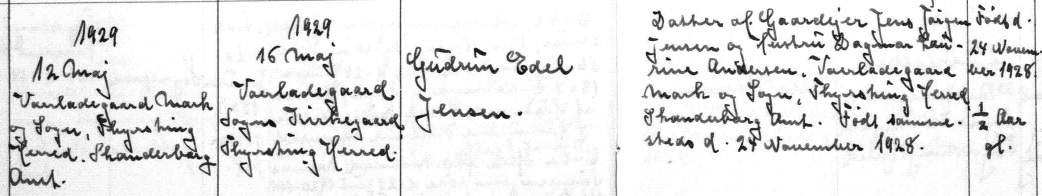 1929
12 Maj
Vorladegaard Mark
og Sogn, Thyrsting
Herred. Skanderborg
Amt.
1929
16 Maj
Vorladegaard
Sogns Kirkegaard
Thyrsting Herred.
Gudrun Edel
Jensen.
Datter af Gaardejer Jens Jørgen
Jensen og Hustru Dagmar Lau-
rine Andersen, Vorladegaard
Mark og Sogn, Thyrsting Herred
Skanderborg Amt. Født samme-
steds d. 24 November 1928.
Født d.
24 Novem-
ber 1928.
1/2 Aar
gl.